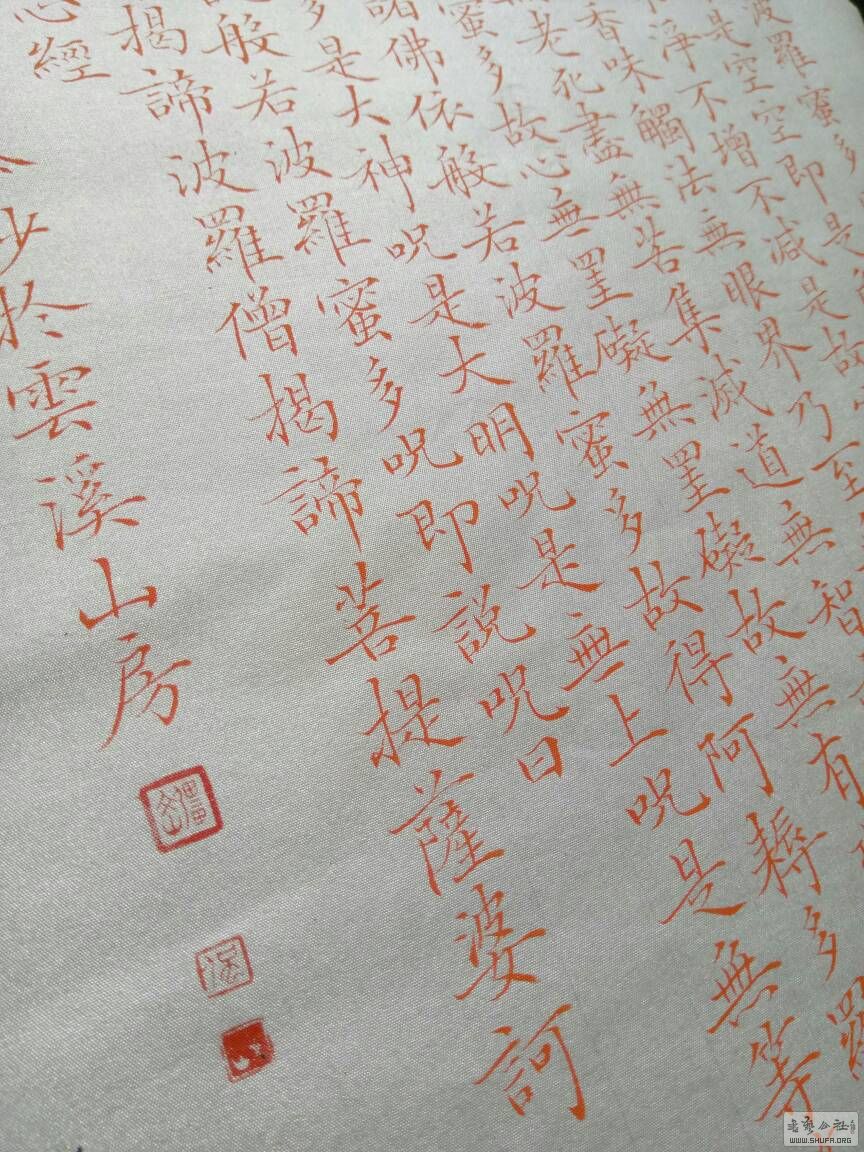 波羅蜜多
是空空即是
淨不增不減是故
香味觸法無眼界乃至
老死盡無苦集滅道無智
蜜多故心無罣礙無罣礙故無有
諸佛依般若波羅蜜多故得阿耨多羅
多是大神呪是大明呪是無上呪是無等
般若波羅蜜多呪即說呪曰
揭諦波羅僧揭諦菩提薩婆訶
心經
抄於雲溪山房
WWW.SHUFA.ORG